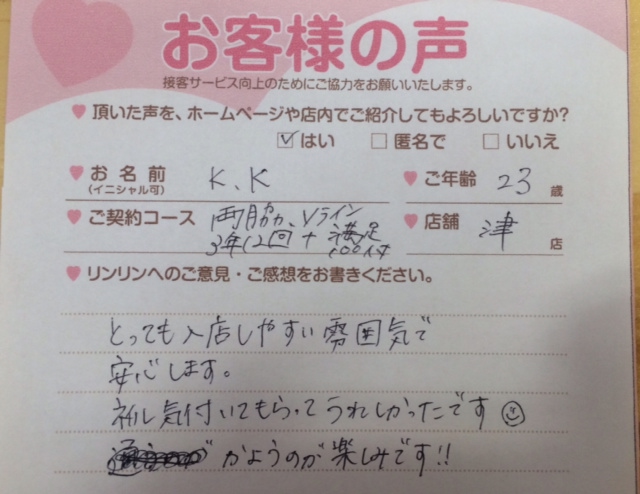 お客様の声
接客サービス向上のためにご協力をお願いいたします。
♥ 頂いた声を、ホームページや店内でご紹介してもよろしいですか?
☑ はい □ 匿名で □ いいえ
♥ お名前 K.K ♥ ご年齢 23 歳
(イニシャル可)
♥ ご契約コース 両脇、Vライン ♥ 店舗 津 店
3年12回 + 満足
♥ リンリンへのご意見・ご感想をお書きください。
とっても入店しやすい雰囲気で
安心します。
ネイル気付いてもらってうれしかったです
かようのが楽しみです!!